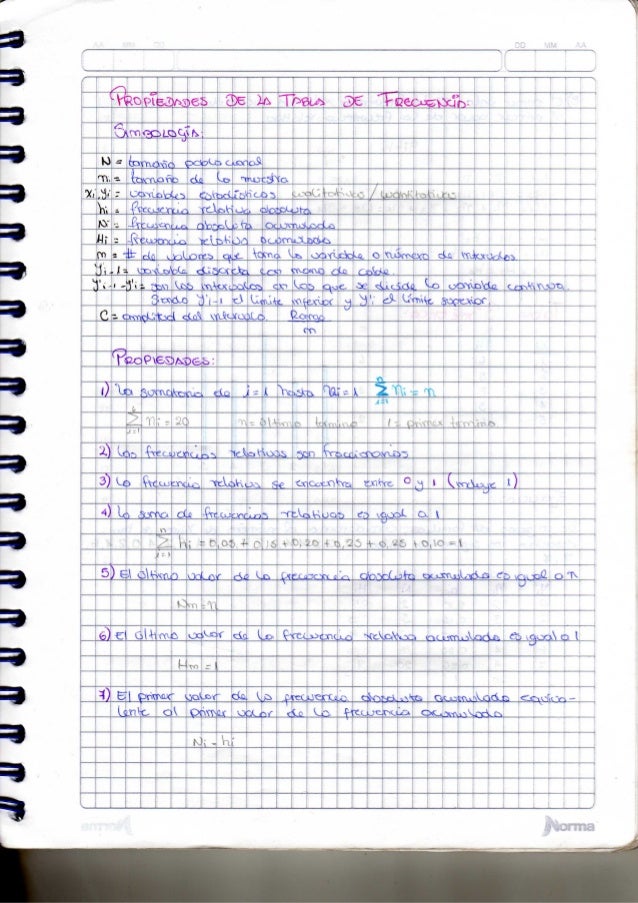 AA MM DD
DD MM AA
PROPIEDADES DE LA TABLA DE FRECUENCIA:
SIMBOLOGÍA:
N = tamaño poblacional
n = tamaño de la muestra
Xi, Yi = variables estadísticas cualitativas / cuantitativas
hi = frecuencia relativa absoluta
Ni = frecuencia absoluta acumulada
Hi = frecuencia relativa acumulada
m = # de valores que toma la variable o número de intervalos
Yi-1 = variable discreta con mano de
Y'i-1 -Y'i = son los intervalos en los que se divide la variable continua.
Siendo Y'i-1 el límite inferior y Y'i el límite superior.
C = amplitud del intervalo. Rango
m
PROPIEDADES:
1) La sumatoria de i = 1 hasta = 1 Σ ni = n
i=1
Σ ni = 20 n = último término 1 = primer término
i=1
2) Las frecuencias relativas son fraccionarias
3) La frecuencia relativa se encuentra entre 0 y 1 (incluye 1)
4) La suma de frecuencias relativas es igual a 1
n
Σ hi = 0,05 + 0,15 + 0,20 + 0,25 + 0,25 + 0,10 = 1
i=1
5) El último valor de la frecuencia absoluta acumulada es igual a n
Nm = n
6) El último valor de la frecuencia relativa acumulada es igual a 1
Hm = 1
7) El primer valor de la frecuencia absoluta acumulada equiva-
lente al primer valor de la frecuencia acumulada
Ni = hi
Norma